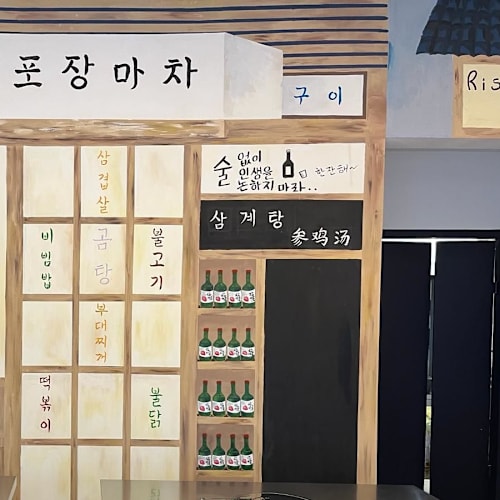 포장마차
구이
Ris
술 없이
인생을
논하지 마라..
한잔해~
삼계탕
参鸡汤
삼겹살
비빔밥
곰탕
불고기
부대찌개
떡볶이
불닭